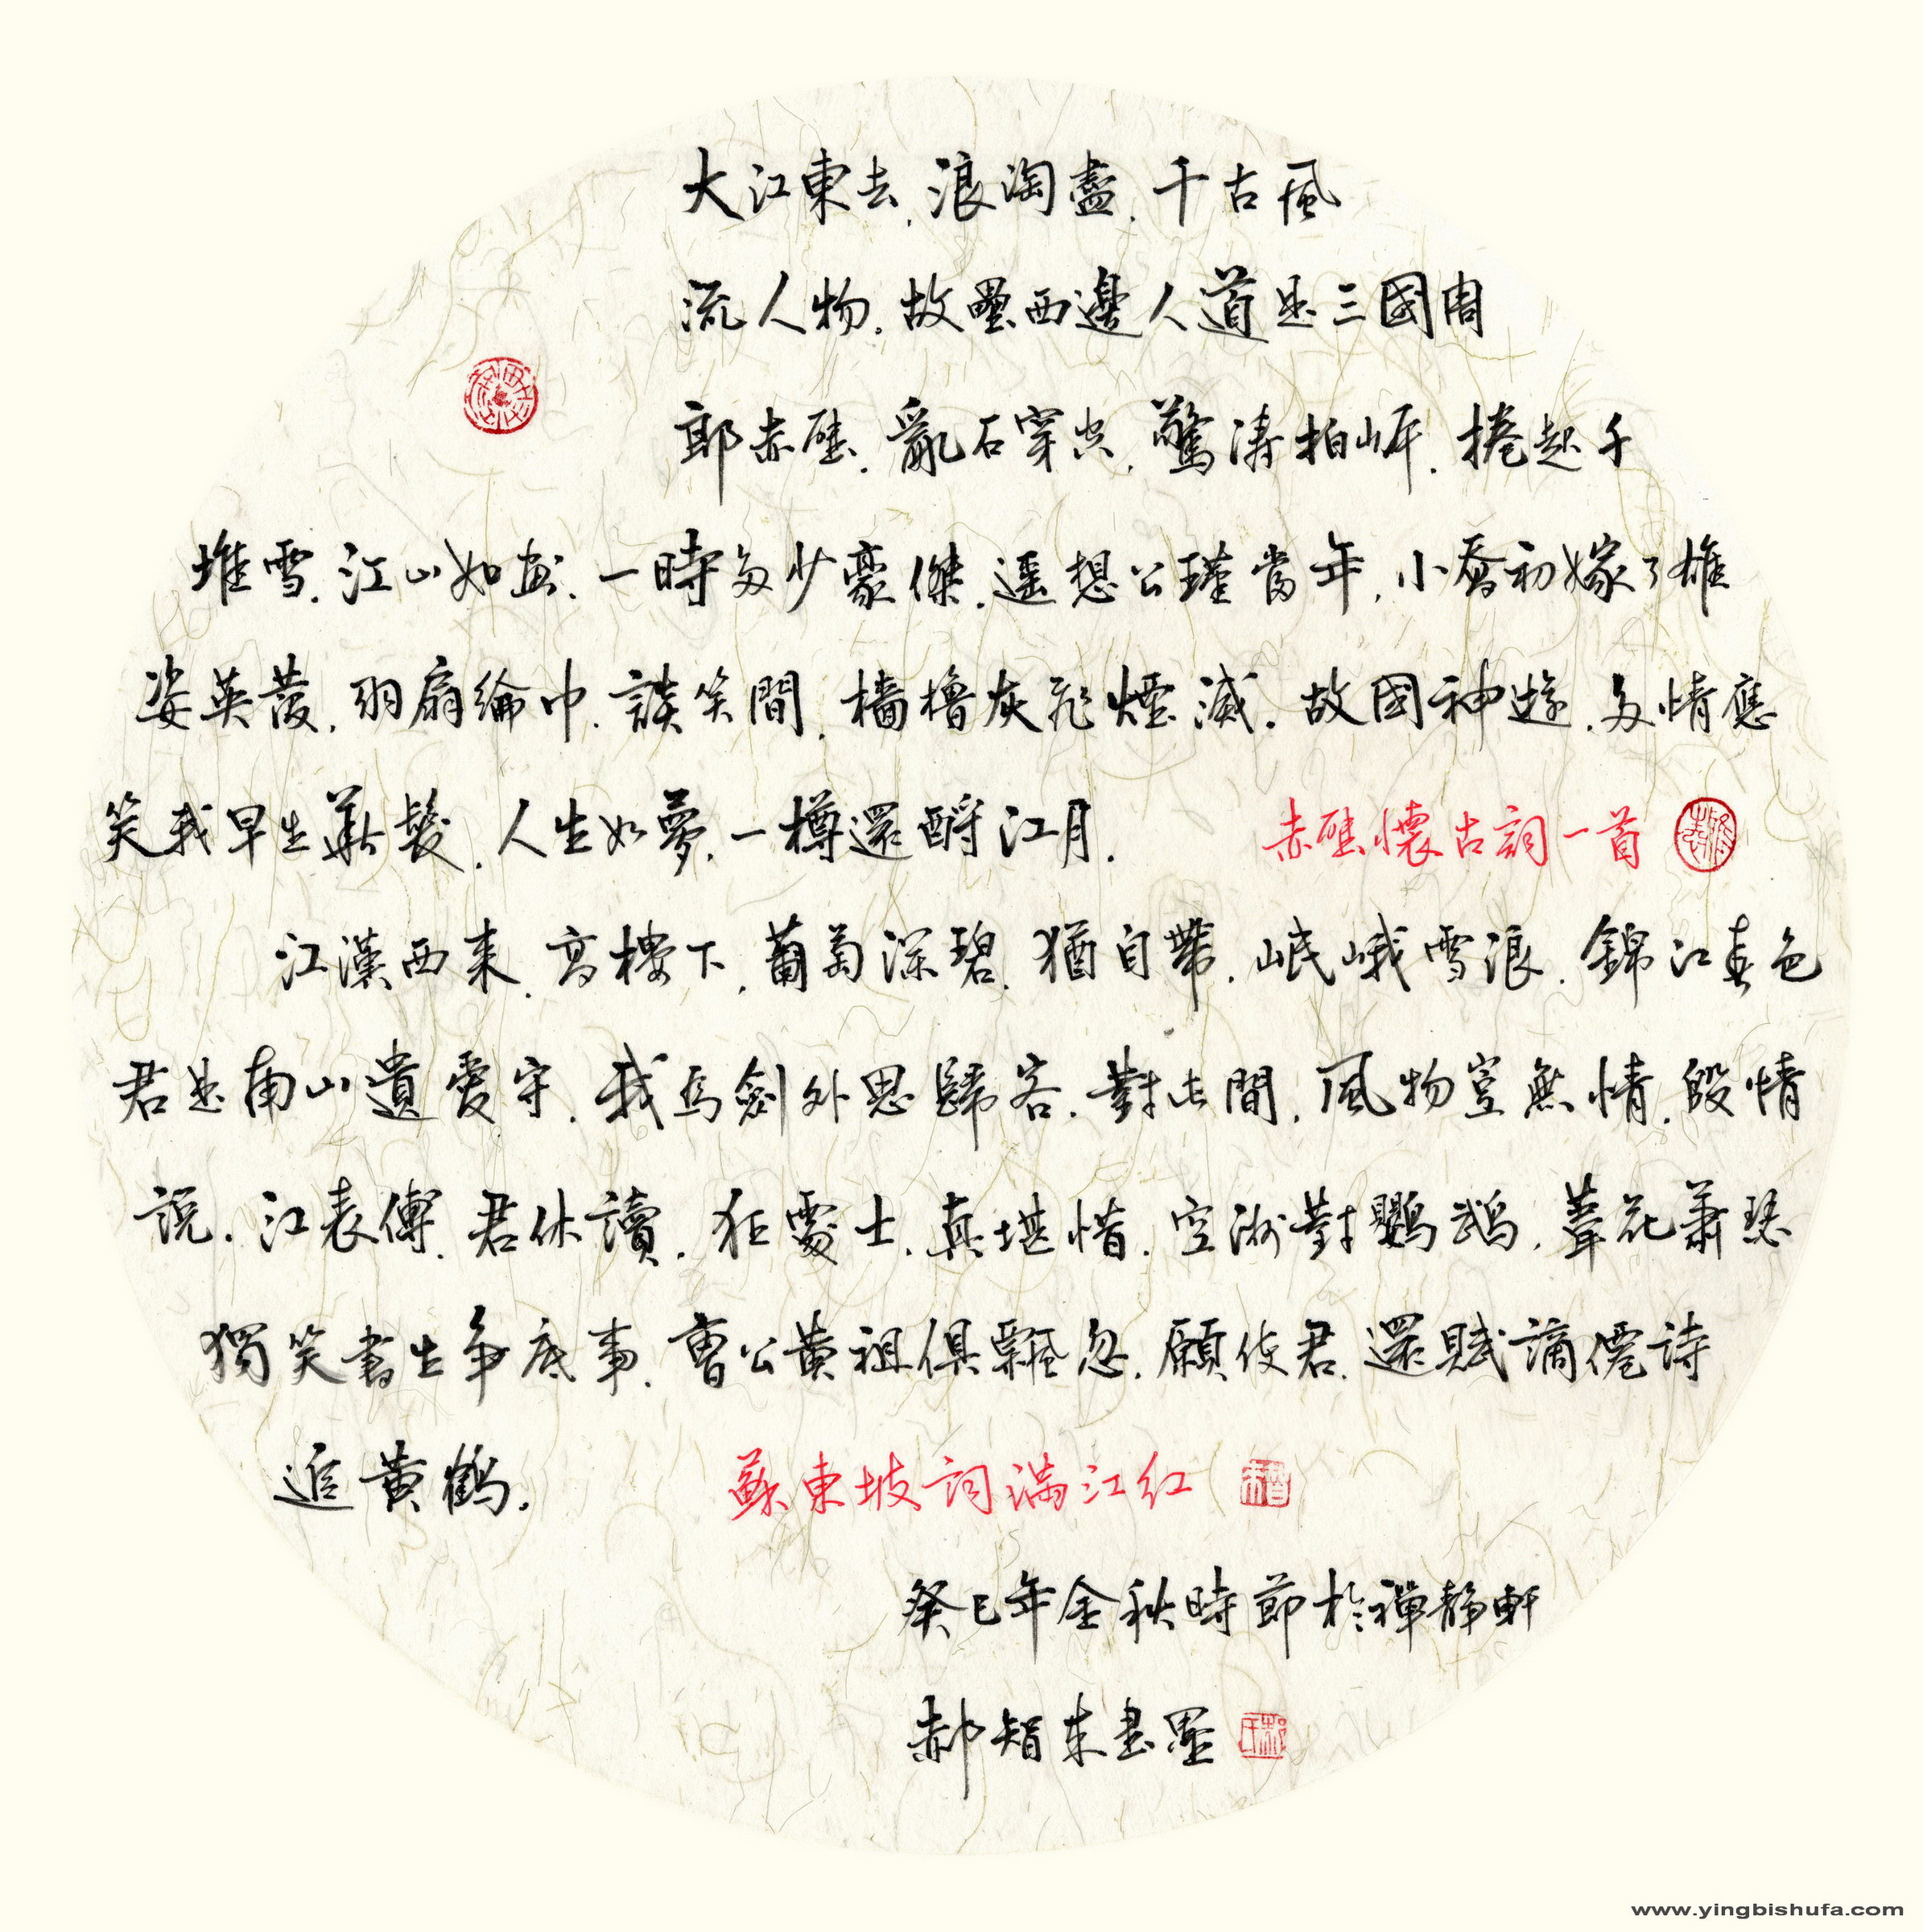 大江東去.浪淘盡.千古風
流人物.故壘西邊人道是三國周
郎赤壁.亂石穿空.驚濤拍岸.捲起千
堆雪.江山如畫.一時多少豪傑.遥想公瑾當年.小喬初嫁了雄
姿英發.羽扇綸巾.談笑間.檣櫓灰飛煙滅.故國神遊.多情應
笑我早生華髮.人生如夢.一樽還酹江月.
赤壁懷古詞一首
江漢西來.高樓下.葡萄深碧.猶自帶.岷峨雪浪.錦江春色
君是南山遺愛守.我爲劍外思歸客.對此間.風物豈無情.殷情
説.江表傳.君休讀.狂處士.真堪惜.空洲對鸚鵡.葦花蕭瑟
獨笑書生争底事.曹公黄祖俱飄忽.願使君.還賦謫僊詩
追黄鶴.
蘇東坡詞満江红
癸巳年金秋時節於禪静軒
郝智東書墨
www.yingbishufa.com